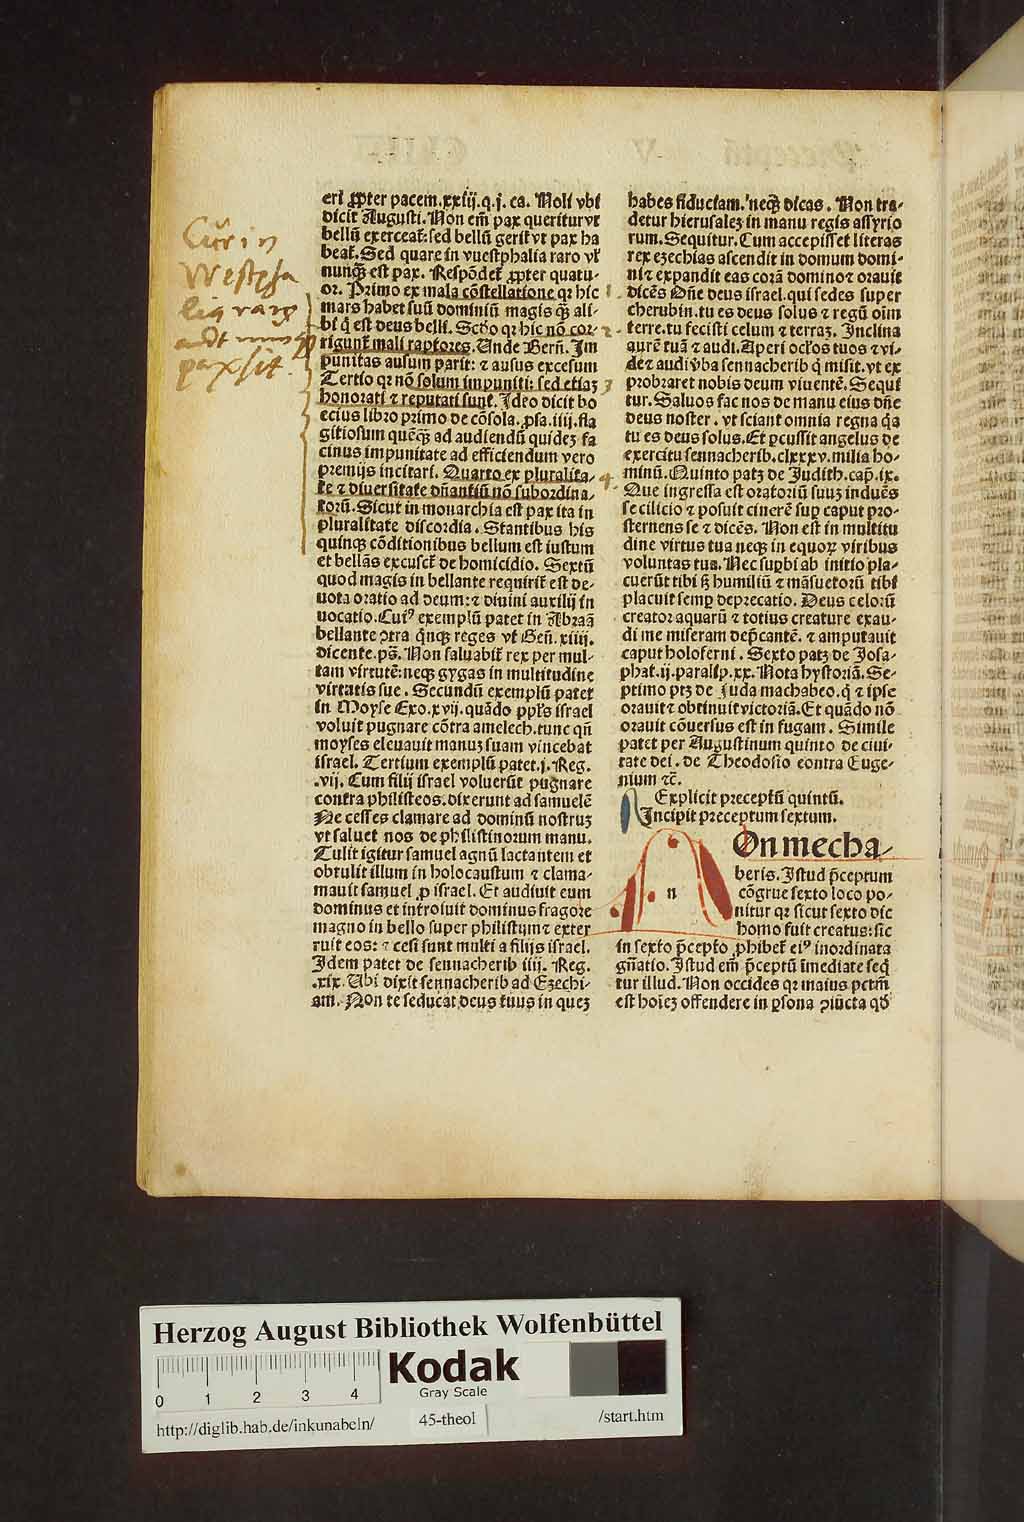 Cur in
Westpha
lia raro
aut nunqȝ
pax sit.
eri ꝓpter pacem.xxiij.q.j. ca. Noli vbi
dicit Augusti. Non em̄ pax queritur vt
bellū exerceat᷑: sed bellū gerit᷑ vt pax ha
beat᷑. Sed quare in vuestphalia raro vł
nunqȝ est pax. Respōdet᷑ ꝓpter quatu-
or. Primo ex mala cōstellatione qꝛ hic
mars habet suū dominiū magis qȝ̄ ali-
bi q̇ est deus belli. Scđo qꝛ hic nō cor-
rigunt᷑ mali raptores. Unde Berñ. Im
punitas ausum parit: ⁊ ausus excesum
Tertio qꝛ nō solum impuniti: sed etiaȝ
honorati ⁊ reputati sunt. Ideo dicit bo
ecius libro primo de cōsola. ꝓsa.iiij. fla
gitiosum quēqȝ ad audiendū quideȝ fa
cinus impunitate ad efficiendum vero
premijs incitari. Quarto ex pluralita-
te ⁊ diuersitate dn̄antiū nō subordina-
torū. Sicut in monarchia est pax ita in
pluralitate discordia. Stantibus his
quinqȝ cōditionibus bellum est iustum
et bellās excusct᷑ de homicidio. Sextū
quod magis in bellante requirit᷑ est de-
uota oratio ad deum: ⁊ diuini auxilij in
uocatio. Cuiꝰ exemplū patet in Abraā
bellante ꝯtra q̇nqȝ reges vt Geñ. xiiij.
dicente. ps̄. Non saluabit᷑ rex per mul-
tam virtutē: neqȝ gygas in multitudine
virtutis sue. Secundū exemplū patet
in Moyse Exo.xvij. quādo ppl̄s israel
voluit pugnare cōtra amelech. tunc qn̄
moyses eleuauit manuȝ suam vincebat
israel. Tertium exemplū patet.j. Reg.
.vij. Cum filij israel voluerūt pugnare
contra philisteos. dixerunt ad samuelē
Ne cesses clamare ad dominū nostruȝ
vt saluet nos de philistinorum manu.
Tulit igitur samuel agnū lactantem et
obtulit illum in holocaustum ⁊ clama-
mauit samuel ꝓ israel. Et audiuit eum
dominus et introiuit dominus fragore
magno in bello super philistijm ⁊ exter
ruit eos: ⁊ cesi sunt multi a filijs israel.
Idem patet de sennacherib iiij. Reg.
.xix. Ubi dixit sennacherib ad Ezechi-
am. Non te seducat deus tuus in queȝ
habes fiduciam. neqȝ dicas. Non tra-
detur hierusaleȝ in manu regis assyrio
rum. Sequitur. Cum accepisset literas
rex ezechias ascendit in domum domi-
ni ⁊ expandit eas corā domino ⁊ orauit
dicēs Dñe deus israel. qui sedes super
cherubin. tu es deus solus ⁊ regū oīm
terre. tu fecisti celum ⁊ terraȝ. Inclina
aurē tuā ⁊ audi. Aperi ocłos tuos ⁊ vi-
de ⁊ audi v̓ba sennacherib q̇ misit. vt ex
probraret nobis deum viuentē. Sequi
tur. Saluos fac nos de manu eius dñe
deus noster. vt sciant omnia regna q̇a
tu es deus solus. Et ꝑcussit angelus de
exercitu sennacherib. clxxxv. milia ho-
minū. Quinto patȝ de Judith. cap̄. ix.
Que ingressa est oratoriū suuȝ induēs
se cilicio ⁊ posuit cinerē suꝑ caput pro-
sternens se ⁊ dicēs. Non est in multitu
dine virtus tua neqȝ in equoꝝ viribus
voluntas tua. Nec suꝑbi ab initio pla-
cuerūt tibi sȝ humiliū ⁊ māsuetorū tibi
placuit semꝑ deprecatio. Deus celorū
creator aquarū ⁊ totius creature exau-
di me miseram dep̄cantē. ⁊ amputauit
caput holoferni. Sexto patȝ de Josa-
phat.ij.paralip.xx. Nota hystoriā. Se-
ptimo ptȝ de Juda machabeo. q̇ ⁊ ipse
orauit ⁊ obtinuit victoriā. Et quādo nō
orauit cōuersus est in fugam. Simile
patet per Augustinum quinto de ciui-
tate dei. de Theodosio contra Euge-
nium ⁊c̄.
Explicit preceptū quintū.
Incipit preceptum sextum.
n
On mecha-
beris. Istud p̄ceptum
cōgrue sexto loco po-
nitur qꝛ sicut sexto die
homo fuit creatus: sic
in sexto p̄cepto ꝓhibet᷑ eiꝰ inordinata
gn̄atio. Istud em̄ p̄ceptū īmediate seq̄
tur illud. Non occides qꝛ maius pctm̄
est hoieȝ offendere in ꝑsona ꝯiūcta qđ
1
2
3
4
Herzog August Bibliothek Wolfenbüttel
0 1 2 3 4
Kodak
Gray Scale
http://diglib.hab.de/inkunabeln/
45-theol
/start.htm